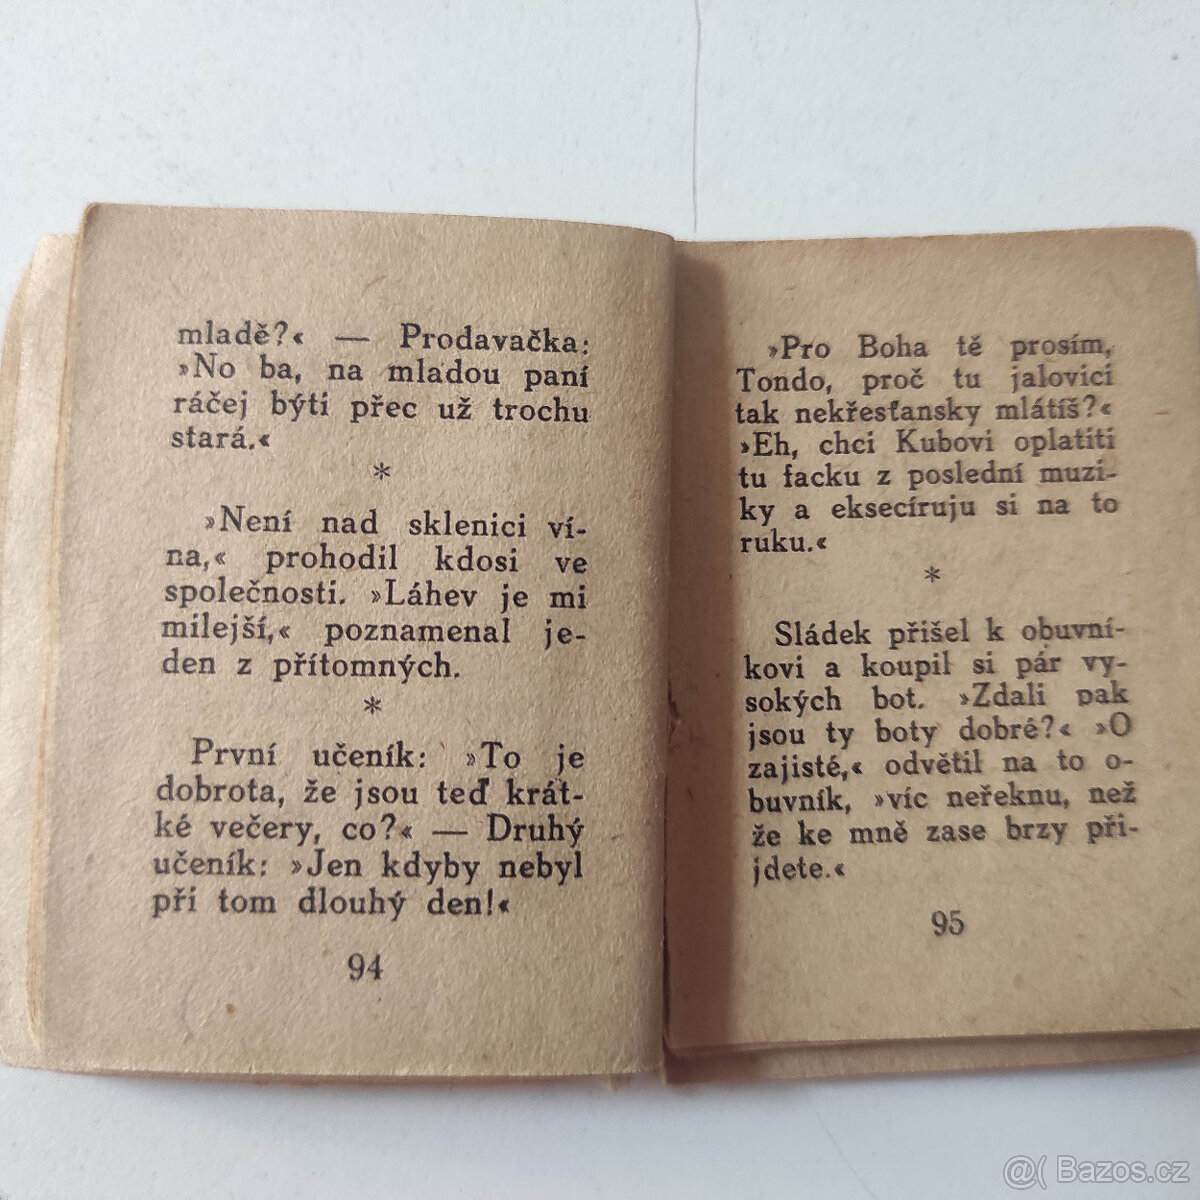 mladě?« — Prodavačka:
»No ba, na mladou paní
ráčej býti přec už trochu
stará.«
*
»Není nad sklenici ví-
na,« prohodil kdosi ve
společnosti. »Láhev je mi
milejší,« poznamenal je-
den z přítomných.
*
První učeník: »To je
dobrota, že jsou teď krát-
ké večery, co?« — Druhý
učeník: »Jen kdyby nebyl
při tom dlouhý den!«
94
»Pro Boha tě prosím,
Tondo, proč tu jalovici
tak nekřesťansky mlátíš?«
»Eh, chci Kubovi oplatiti
tu facku z poslední muzi-
ky a eksecíruju si na to
ruku.«
*
Sládek přišel k obuvní-
kovi a koupil si pár vy-
sokých bot. »Zdali pak
jsou ty boty dobré?« »O
zajisté,« odvětil na to o-
buvník, »víc neřeknu, než
že ke mně zase brzy při-
jdete.«
95
@( Bazos.cz